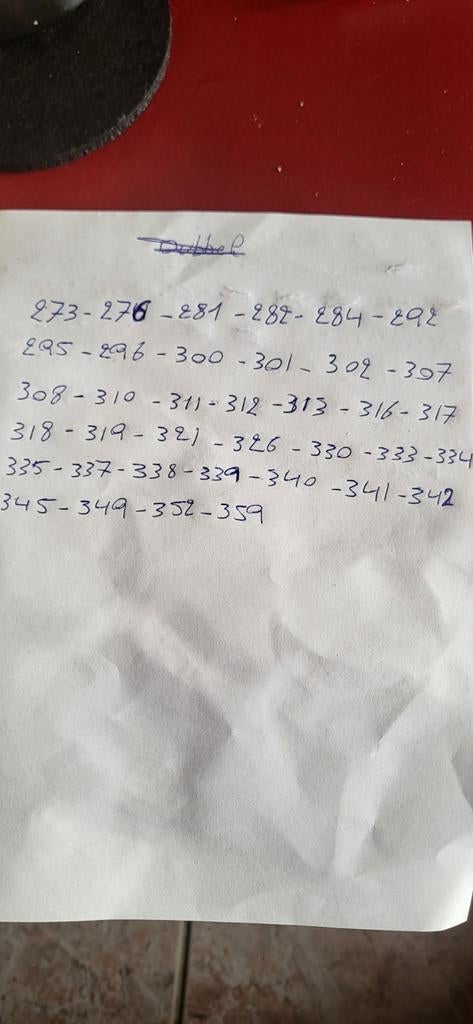 Dubbel
273-276-281-282-284-292
295-296-300-301-302-307
308-310-311-312-313-316-317
318-319-321-326-330-333-334
335-337-338-339-340-341-342
345-349-352-359